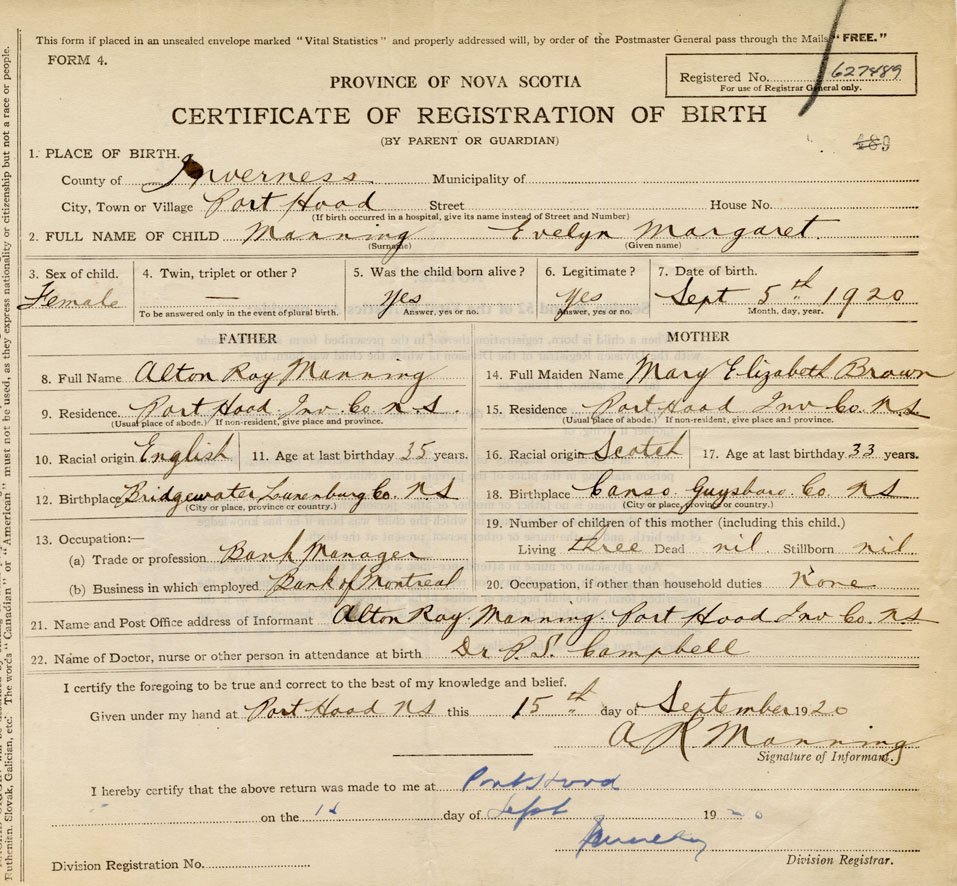 This form if placed in an unsealed envelope marked "Vital Statistics" and properly addressed will, by order of the Postmaster General pass through the Mails "FREE."
FORM 4.
PROVINCE OF NOVA SCOTIA
Registered No. 627489
For use of Registrar General only.
CERTIFICATE OF REGISTRATION OF BIRTH
(BY PARENT OR GUARDIAN)
1. PLACE OF BIRTH.
County of Inverness Municipality of
City, Town or Village Port Hood Street House No.
(If birth occurred in a hospital, give its name instead of Street and Number)
2. FULL NAME OF CHILD Manning Evelyn Margaret
(Surname) (Given name)
3. Sex of child. 4. Twin, triplet or other? 5. Was the child born alive? 6. Legitimate? 7. Date of birth.
Female — Yes Yes Sept 5th 1920
To be answered only in the event of plural birth. Answer, yes or no. Answer, yes or no. Month, day, year.
FATHER MOTHER
8. Full Name Alton Roy Manning 14. Full Maiden Name Mary Elizabeth Brown
9. Residence Port Hood Inv. Co. N.S. 15. Residence Port Hood Inv Co. N.S.
(Usual place of abode.) If non-resident, give place and province. (Usual place of abode.) If non-resident, give place and province.
10. Racial origin English 11. Age at last birthday 35 years. 16. Racial origin Scotch 17. Age at last birthday 33 years.
12. Birthplace Bridgewater Lunenburg Co. NS 18. Birthplace Canso Guysboro Co. NS
(City or place, province or country.) (City or place, province or country.)
13. Occupation:— 19. Number of children of this mother (including this child.)
(a) Trade or profession Bank Manager Living three Dead nil. Stillborn nil
(b) Business in which employed Bank of Montreal 20. Occupation, if other than household duties None
21. Name and Post Office address of Informant Alton Roy Manning. Port Hood Inv Co. NS
22. Name of Doctor, nurse or other person in attendance at birth Dr P.S. Campbell
I certify the foregoing to be true and correct to the best of my knowledge and belief.
Given under my hand at Port Hood NS this 15th day of September 1920
A R Manning
Signature of Informant.
I hereby certify that the above return was made to me at Port Hood
on the day of Sept 1920
Division Registrar.
Division Registration No.
Ruthenian, Slovak, Galician, etc. The words "Canadian" or "American" must not be used, as they express nationality or citizenship but not a race or people.